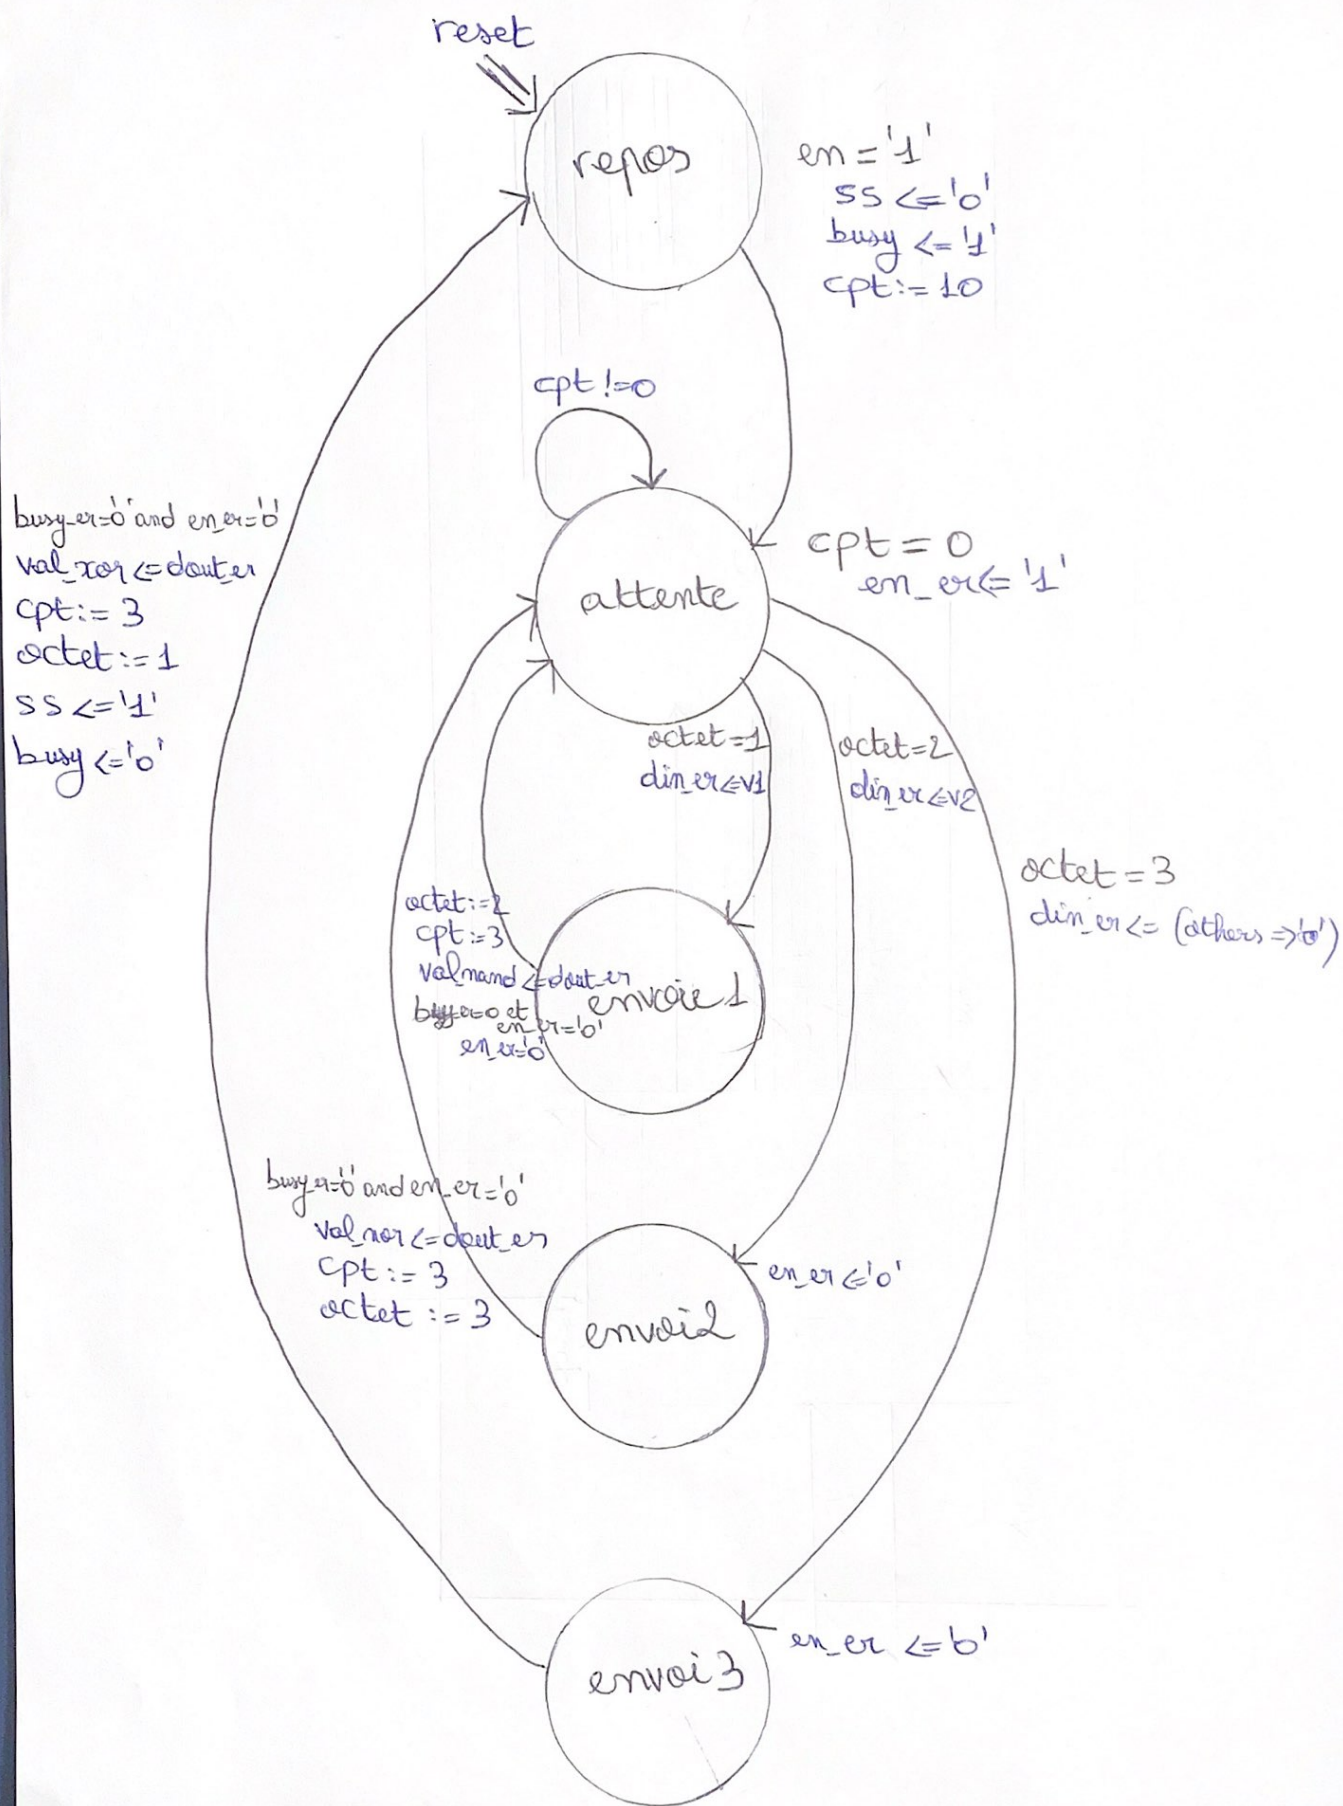 reset
repos
en = '1'
ss <= '0'
busy <= '1'
cpt := 10
cpt != 0
busy_er='0' and en_er='0'
val_xor <= dout_er
cpt := 3
octet := 1
ss <= '1'
busy <= '0'
attente
cpt = 0
en_er <= '1'
octet = 1
din_er <= v1
octet = 2
din_er <= v2
octet = 3
din_er <= (others => '0')
octet := 2
cpt := 3
val_nand <= dout_er
envoie 1
en_er = '0'
en_er = '0'
busy_er='0' and en_er='0'
val_nor <= dout_er
cpt := 3
octet := 3
en_er <= '0'
envoi2
en_er <= '0'
envoi 3